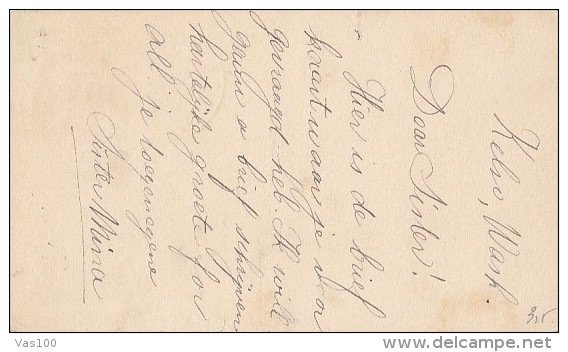 Kelso, Wash.
Dear Sister!
Hier is de brief
kaart waar je voor
gevraagd heb. Ik will
gauw a brief schrijven
hartelijke groete for
all. Je toegenegene
Sister Mina
Vas100
delcampe.net